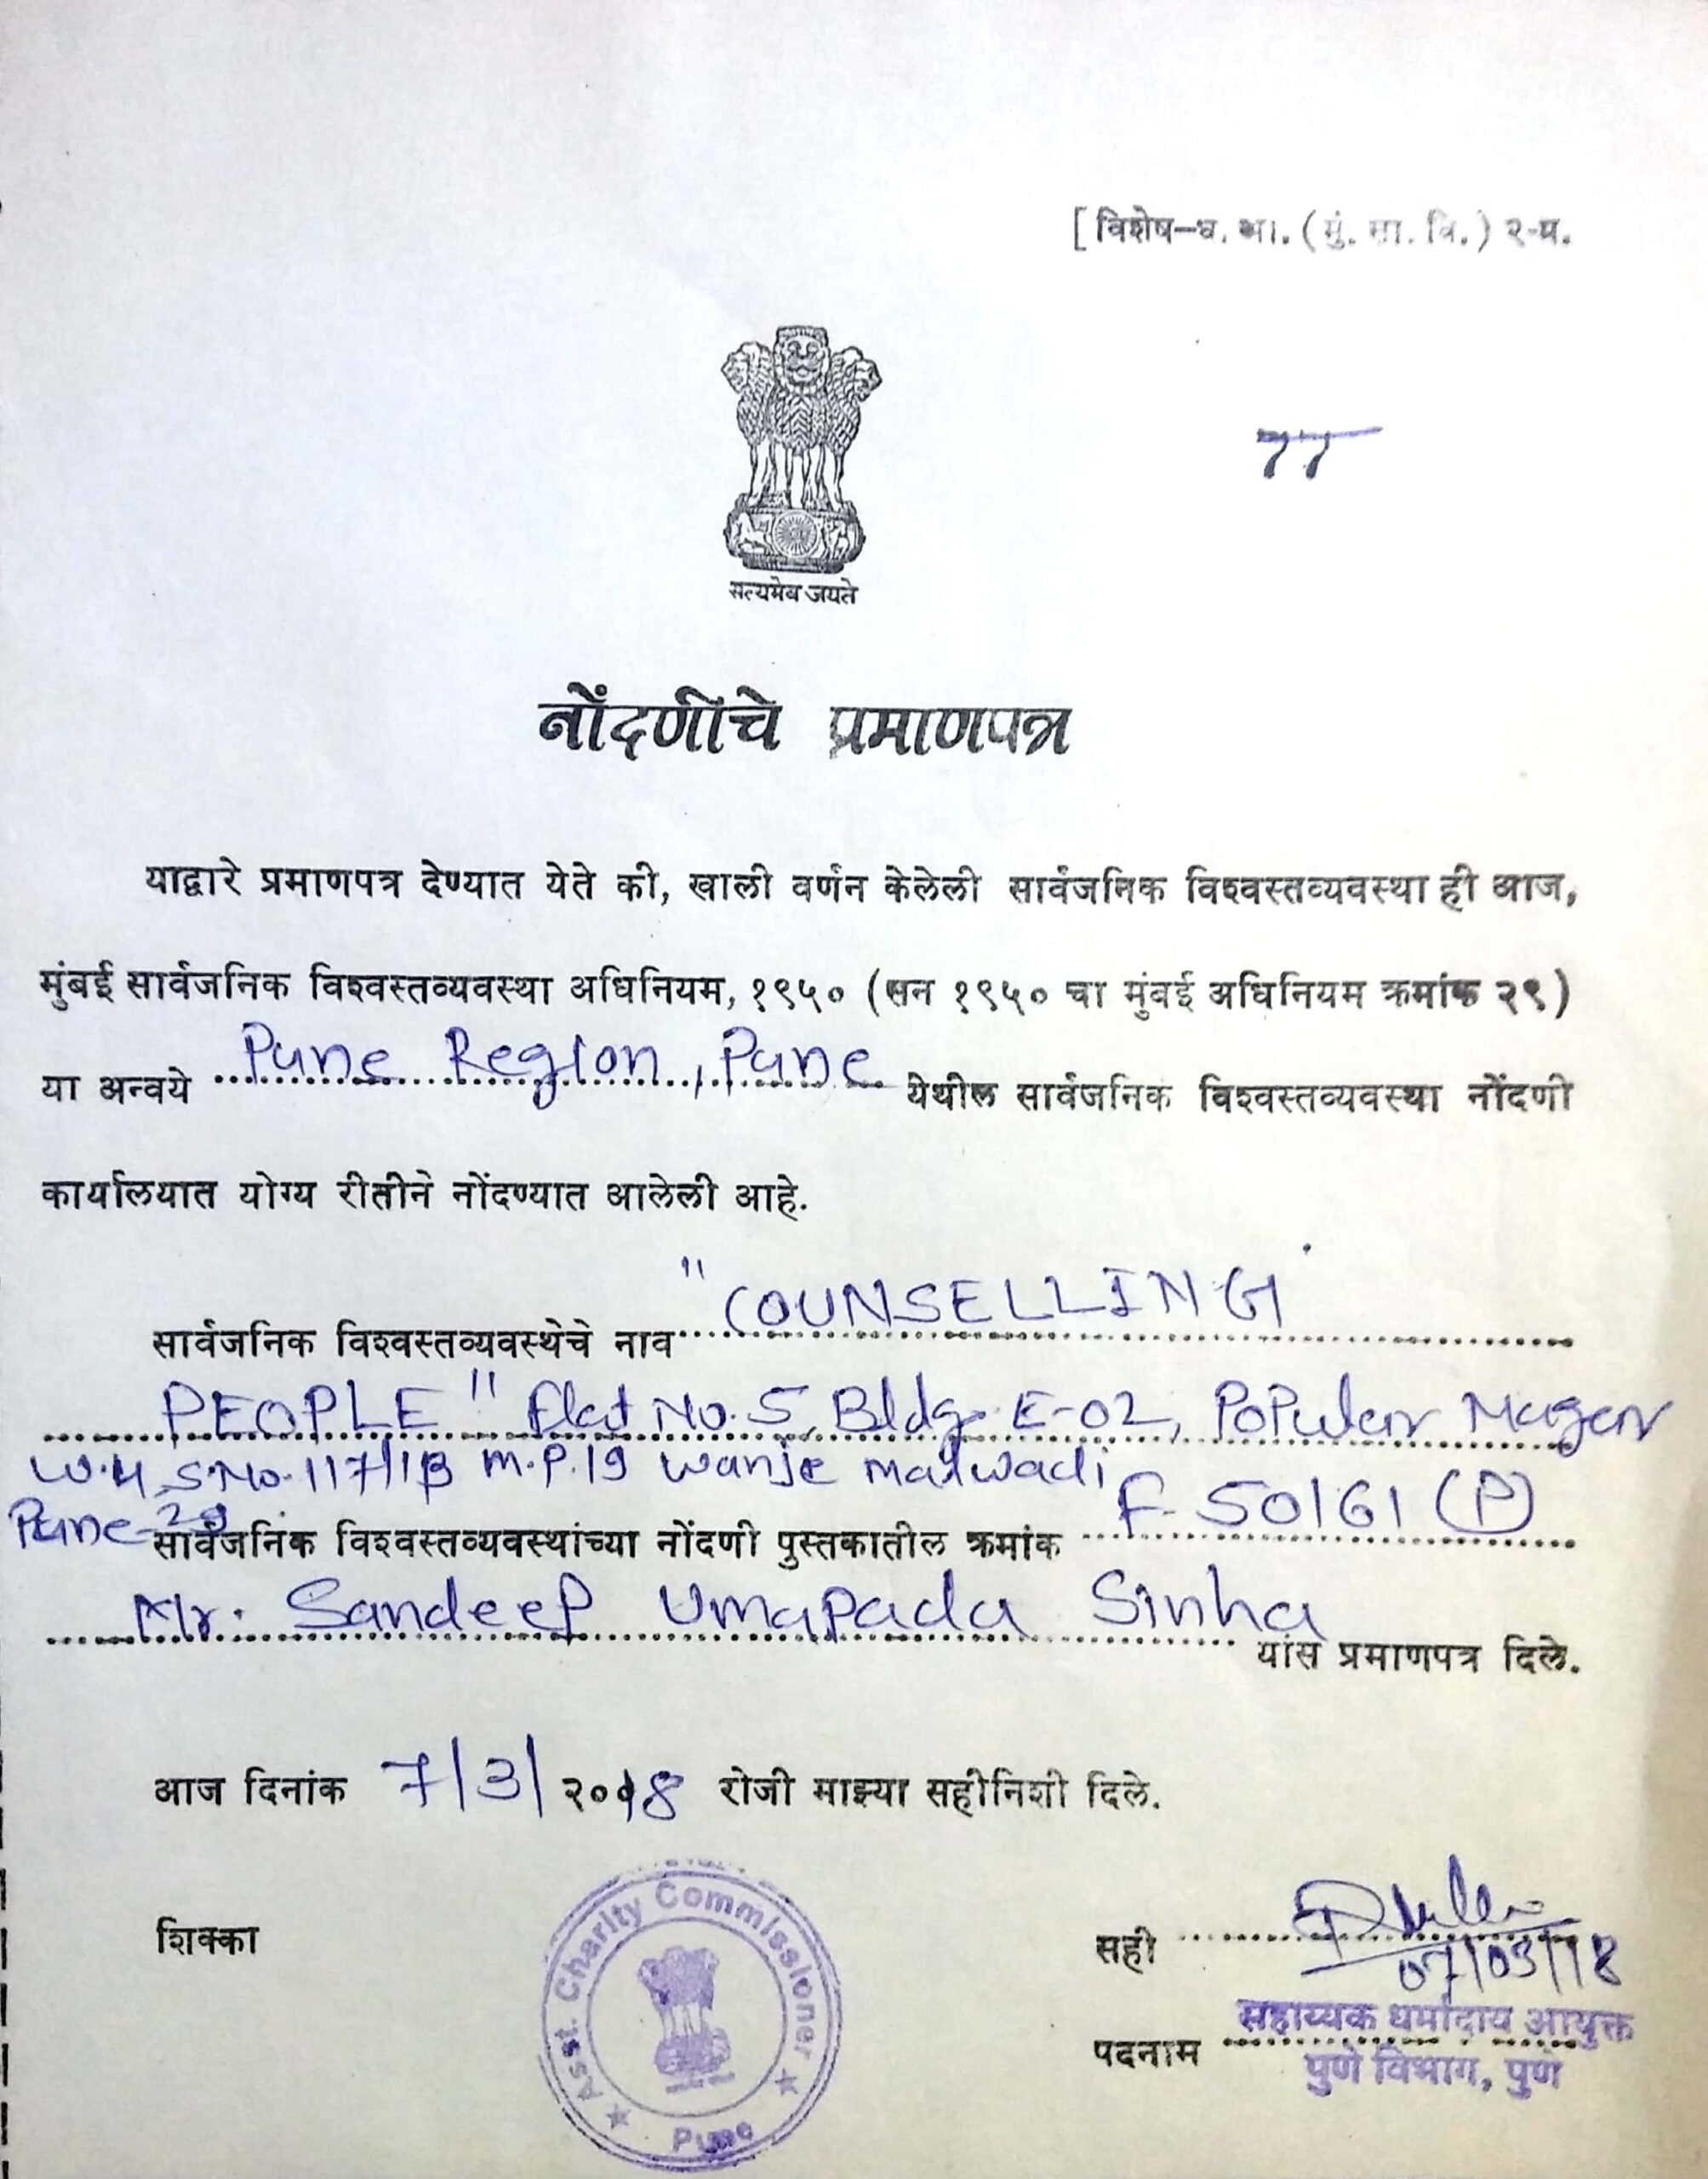 [ विशेष—ध. आ. (मुं. सा. वि.) २-म.
सत्यमेव जयते
नोंदणीचे प्रमाणपत्र
याद्वारे प्रमाणपत्र देण्यात येते की, खाली वर्णन केलेली सार्वजनिक विश्वस्तव्यवस्था ही आज,
मुंबई सार्वजनिक विश्वस्तव्यवस्था अधिनियम, १९५० (सन १९५० चा मुंबई अधिनियम क्रमांक २९)
या अन्वये Pune Region, Pune येथील सार्वजनिक विश्वस्तव्यवस्था नोंदणी
कार्यालयात योग्य रीतीने नोंदण्यात आलेली आहे.
सार्वजनिक विश्वस्तव्यवस्थेचे नाव "COUNSELLING
PEOPLE" Flat No. 5, Bldg E-02, Popular Nagar
S.No. 117/1B M.P.19 Wanje Malwadi
Pune-29
सार्वजनिक विश्वस्तव्यवस्थांच्या नोंदणी पुस्तकातील क्रमांक F-50161 (P)
Mr. Sandeep Umapada Sinha यांस प्रमाणपत्र दिले.
आज दिनांक 7/3/२०18 रोजी माझ्या सहीनिशी दिले.
शिक्का
Asst. Charity Commissioner
Pune
सही
07/03/18
पदनाम सहाय्यक धर्मादाय आयुक्त
पुणे विभाग, पुणे